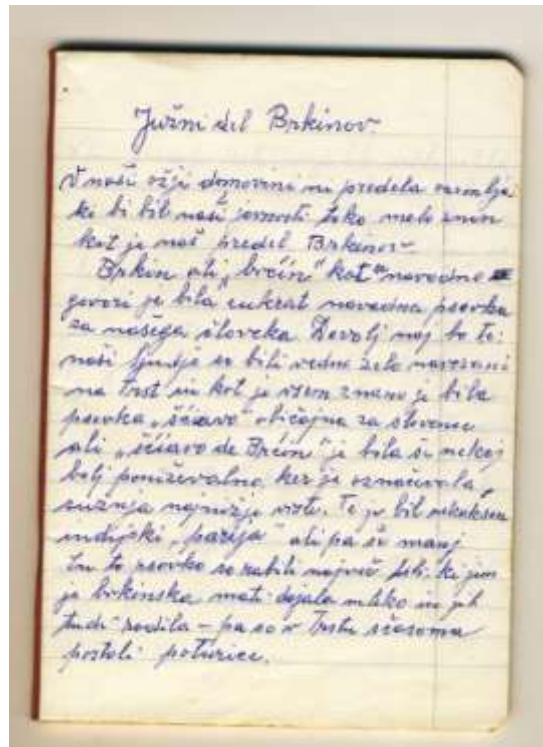 Južni del Brkinov
V naši ožji domovini ni predela ozemlja
ki bi bil naši javnosti tako malo znan
kot je naš predel Brkinov
Brkin ali "brćin" kot navadno
govori je bila enkrat navadna psovka
za našega človeka Dovolj naj bo to:
naši ljudje so bili vedno zelo navezani
na Trst in kot je vsem znano je bila
psovka "ščiavo" običajna za slovence
ali "ščiavo de Brćin" je bila še nekaj
bolj poniževalno, ker je označevala
sužnja najnižje vrste. Te je bil nekakšen
indijski "parija" ali pa še manj
In to psovko so rabili največ tisti ki jim
je brkinska mati dajala mleko in jih
tudi rodila – pa so v Trstu sčasoma
postali poturice.